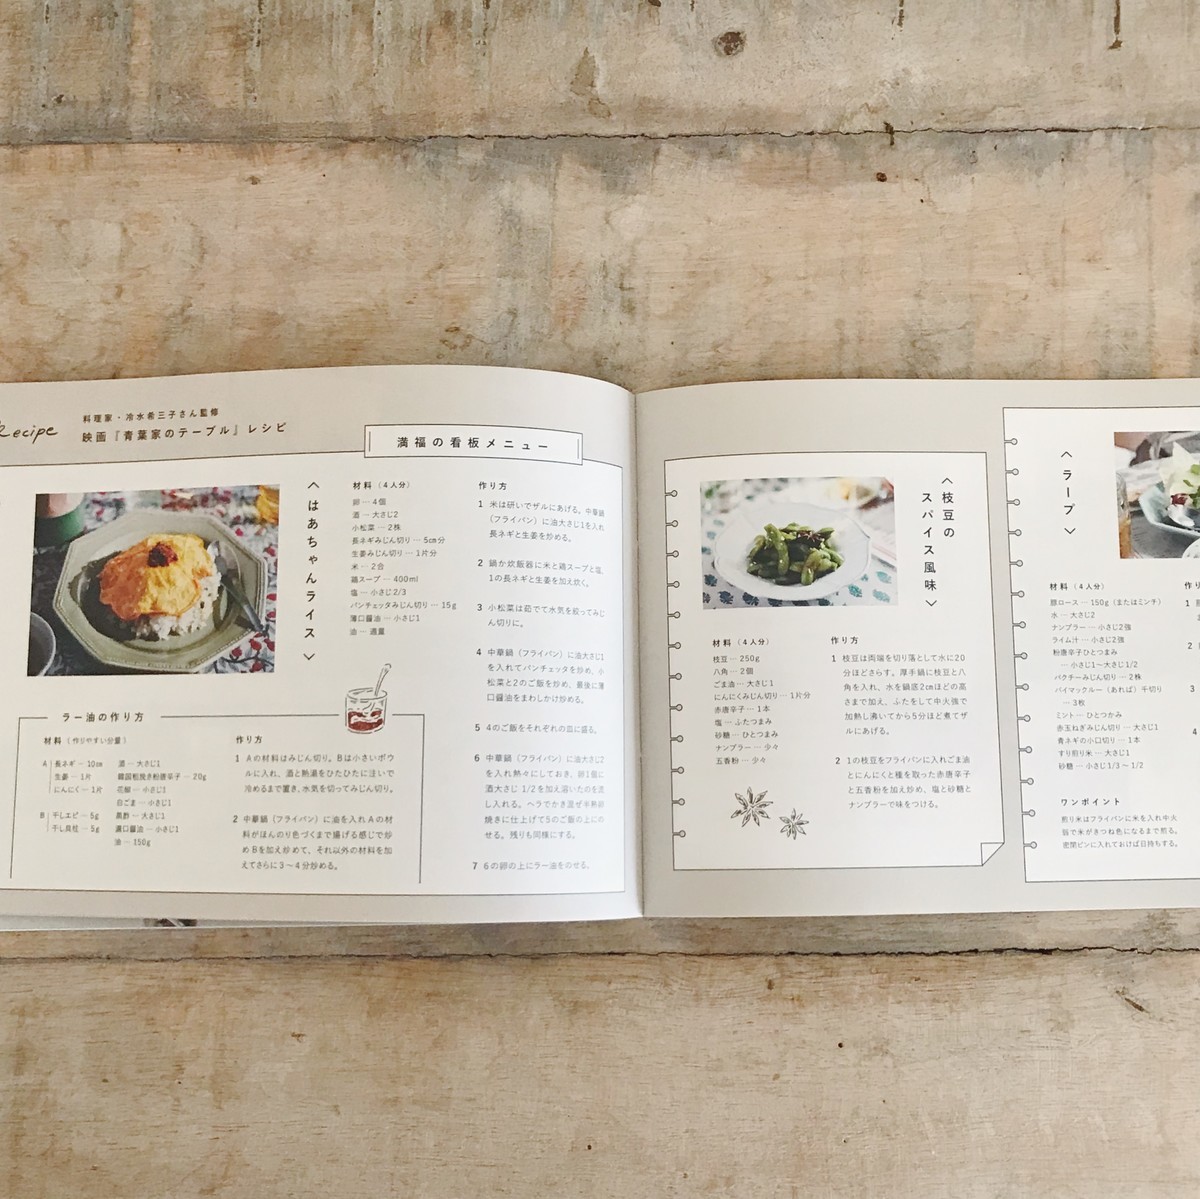 Recipe
料理家・冷水希三子さん監修
映画『青葉家のテーブル』レシピ
満福の看板メニュー
〈はあちゃんライス〉
材料（4人分）
卵 … 4個
酒 … 大さじ2
小松菜 … 2株
長ネギみじん切り … 5cm分
生姜みじん切り … 1片分
米 … 2合
鶏スープ … 400ml
塩 … 小さじ2/3
パンチェッタみじん切り … 15g
薄口醤油 … 小さじ1
油 … 適量
作り方
1 米は研いでザルにあげる。中華鍋
（フライパン）に油大さじ1を入れ
長ネギと生姜を炒める。
2 鍋か炊飯器に米と鶏スープと塩、
1の長ネギと生姜を加え炊く。
3 小松菜は茹でて水気を絞ってみじ
ん切りに。
4 中華鍋（フライパン）に油大さじ1
を入れてパンチェッタを炒め、小
松菜と2のご飯を炒め、最後に薄
口醤油をまわしかけ炒める。
5 4のご飯をそれぞれの皿に盛る。
6 中華鍋（フライパン）に油大さじ2
を入れ熱々にしておき、卵1個に
酒大さじ 1/2を加え溶いたのを流
し入れる。ヘラでかき混ぜ半熟卵
焼きに仕上げて5のご飯の上にの
せる。残りも同様にする。
7 6の卵の上にラー油をのせる。
ラー油の作り方
材料（作りやすい分量）
A 長ネギ … 10cm
生姜 … 1片
にんにく … 1片
B 干しエビ … 5g
干し貝柱 … 5g
酒 … 大さじ1
韓国粗挽き粉唐辛子 … 20g
花椒 … 小さじ1
白ごま … 小さじ1
黒酢 … 大さじ1
濃口醤油 … 小さじ1
油 … 150g
作り方
1 Aの材料はみじん切り。Bは小さいボウ
ルに入れ、酒と熱湯をひたひたに注いで
冷めるまで置き、水気を切ってみじん切り。
2 中華鍋（フライパン）に油を入れAの材
料がほんのり色づくまで揚げる感じで炒
めBを加え炒めて、それ以外の材料を加
えてさらに3〜4分炒める。
〈枝豆の
スパイス風味〉
材料（4人分）
枝豆 … 250g
八角 … 2個
ごま油 … 大さじ1
にんにくみじん切り … 1片分
赤唐辛子 … 1本
塩 … ふたつまみ
砂糖 … ひとつまみ
ナンプラー … 少々
五香粉 … 少々
作り方
1 枝豆は両端を切り落として水に20
分ほどさらす。厚手鍋に枝豆と八
角を入れ、水を鍋底2cmほどの高
さまで加え、ふたをして中火強で
加熱し沸いてから5分ほど煮てザ
ルにあげる。
2 1の枝豆をフライパンに入れごま油
とにんにくと種を取った赤唐辛子
と五香粉を加え炒め、塩と砂糖と
ナンプラーで味をつける。
〈ラープ〉
材料（4人分）
豚ロース … 150g（またはミンチ）
水 … 大さじ2
ナンプラー … 小さじ2強
ライム汁 … 小さじ2強
粉唐辛子ひとつまみ
… 小さじ1〜大さじ1/2
パクチーみじん切り … 2株
バイマックルー（あれば）千切り
… 3枚
ミント … ひとつかみ
赤玉ねぎみじん切り … 大さじ1
青ネギの小口切り … 1本
すり煎り米 … 大さじ1
砂糖 … 小さじ1/3〜1/2
ワンポイント
煎り米はフライパンに米を入れ中火
弱で米がきつね色になるまで煎る。
密閉ビンに入れておけば日持ちする。
作り
1
2
3
4